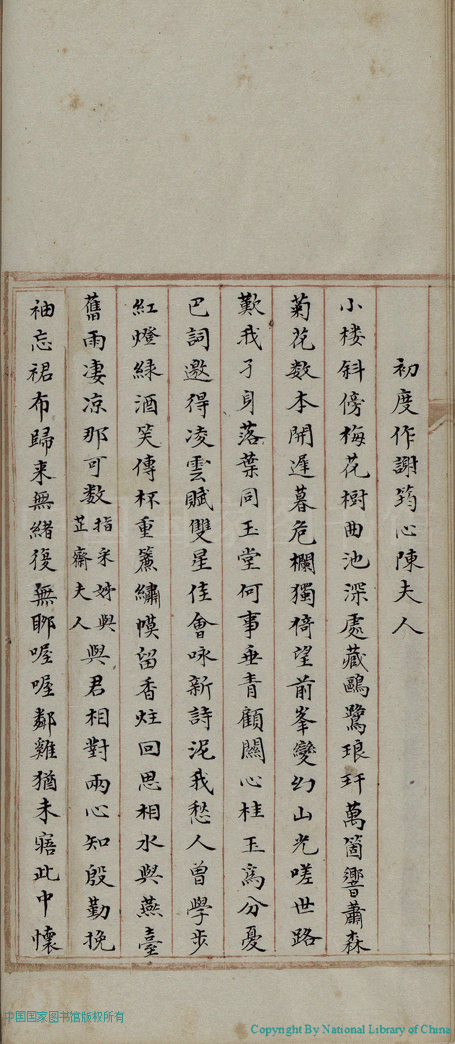 初度作謝筠心陳夫人
小楼斜傍梅花樹曲池深處藏鷗鷺琅玕萬箇響蕭森
菊花数本開遲暮危欄獨倚望前峯變幻山光嗟世路
歎我孑身落葉同玉堂何事垂青顧關心桂玉為分憂
巴詞邀得凌雲賦雙星佳會咏新詩泥我愁人曾學步
紅燈緑酒笑傳杯重簾繡幙留香炷回思相水與燕臺
舊雨凄凉那可数指采姊與芷齋夫人與君相對兩心知殷勤挽
袖忘裙布歸来無緒復無聊喔喔鄰雞猶未寤此中懷
中国国家图书馆版权所有
Copyright By National Library of China